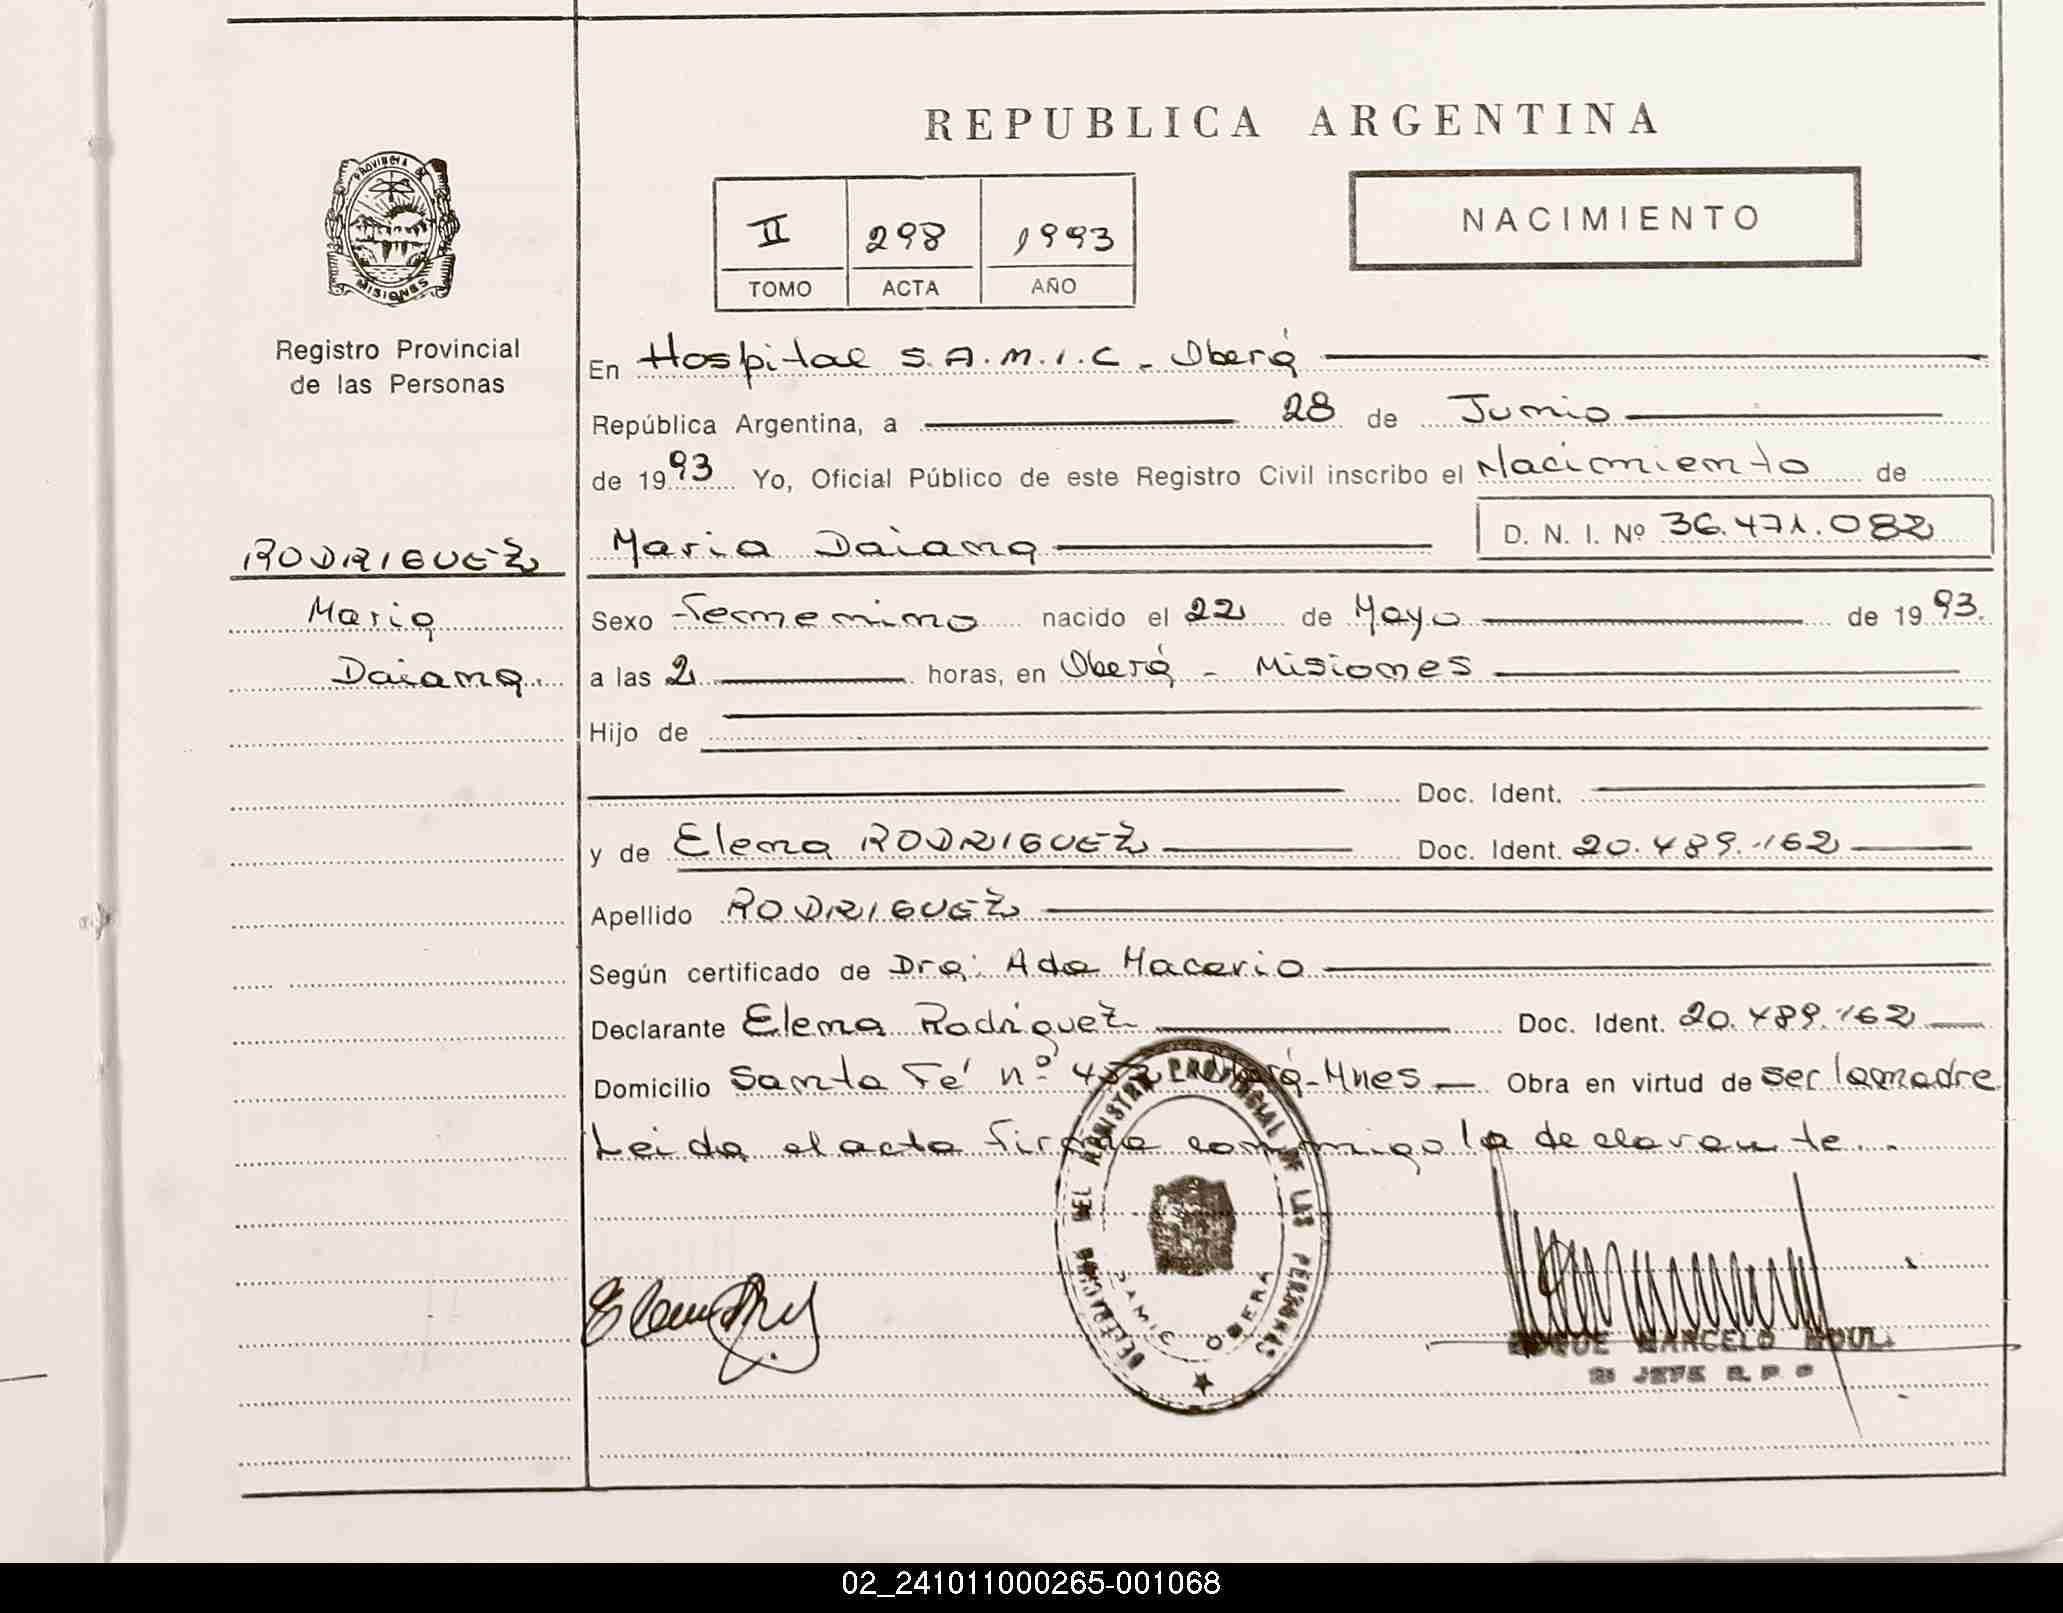 REPUBLICA ARGENTINA
PROVINCIA DE
MISIONES
NACIMIENTO
II 298 1993
TOMO ACTA AÑO
Registro Provincial
de las Personas
En Hospital S.A.M.I.C - Oberá
República Argentina, a 28 de Junio
de 1993 Yo, Oficial Público de este Registro Civil inscribo el Nacimiento de
Maria Daiana D. N. I. Nº 36.471.082
RODRIGUEZ
Maria
Daiana.
Sexo Femenino nacido el 22 de Mayo de 1993.
a las 2 horas, en Oberá - Misiones
Hijo de
Doc. Ident.
y de Elena RODRIGUEZ Doc. Ident. 20.489.162
Apellido RODRIGUEZ
Según certificado de Dra: Ada Macario
Declarante Elena Rodriguez Doc. Ident. 20.489.162
Domicilio Santa Fé nº Oberá-Mnes Obra en virtud de ser la madre
Leida el acta firma conmigo la declarante..
DELEGACION DEL REGISTRO PROVINCIAL DE LAS PERSONAS
SAMIC OBERA
ROQUE MARCELO
JEFE R. P. P
02_241011000265-001068